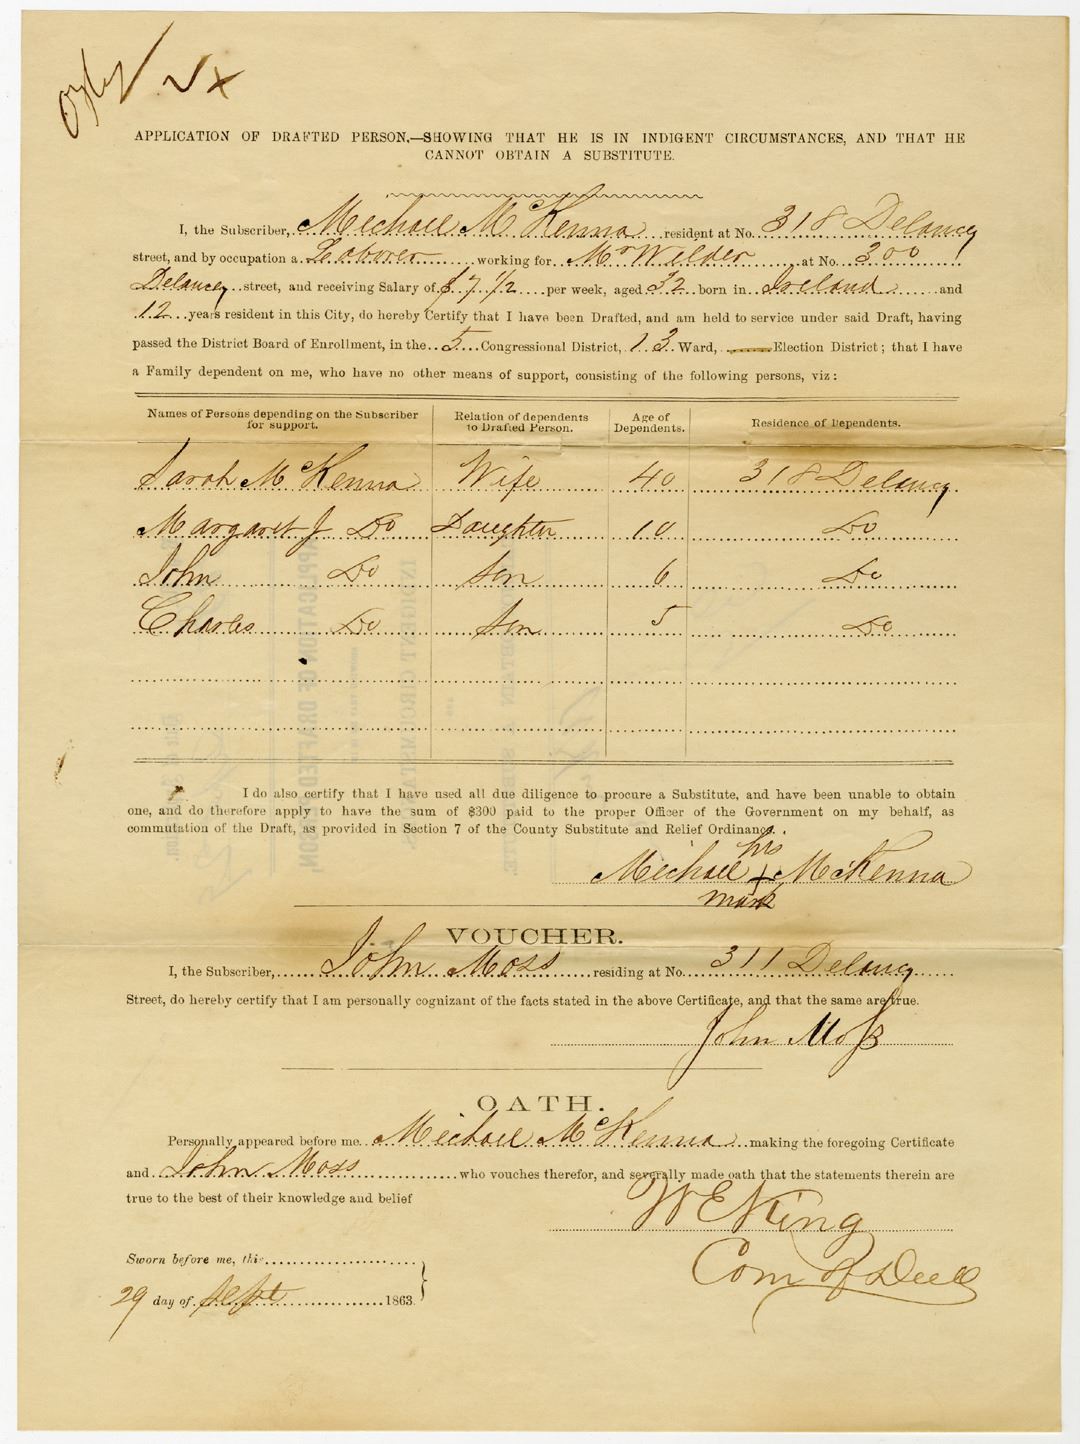 APPLICATION OF DRAFTED PERSON,—SHOWING THAT HE IS IN INDIGENT CIRCUMSTANCES, AND THAT HE
CANNOT OBTAIN A SUBSTITUTE.
I, the Subscriber, Michael McKenna resident at No. 318 Delancy
street, and by occupation a Laborer working for Mr Wilder at No. 300
Delancey street, and receiving Salary of $7 1/2 per week, aged 32 born in Ireland and
12 years resident in this City, do hereby Certify that I have been Drafted, and am held to service under said Draft, having
passed the District Board of Enrollment, in the 5 Congressional District, 13 Ward, — Election District; that I have
a Family dependent on me, who have no other means of support, consisting of the following persons, viz:
Names of Persons depending on the Subscriber for support. Relation of dependents to Drafted Person. Age of Dependents. Residence of Dependents.
Sarah McKenna Wife 40 318 Delancy
Margaret J Do Daughter 10 Do
John Do Son 6 Do
Charles Do Son 5 Do
I do also certify that I have used all due diligence to procure a Substitute, and have been unable to obtain
one, and do therefore apply to have the sum of $300 paid to the proper Officer of the Government on my behalf, as
commutation of the Draft, as provided in Section 7 of the County Substitute and Relief Ordinance.
his
Michael + McKenna
mark
VOUCHER.
I, the Subscriber, John Moss residing at No. 311 Delancy
Street, do hereby certify that I am personally cognizant of the facts stated in the above Certificate, and that the same are true.
John Moss
OATH.
Personally appeared before me Michael McKenna making the foregoing Certificate
and John Moss who vouches therefor, and severally made oath that the statements therein are
true to the best of their knowledge and belief
W E King
Com of Deeds
Sworn before me, this
29 day of Sept 1863.